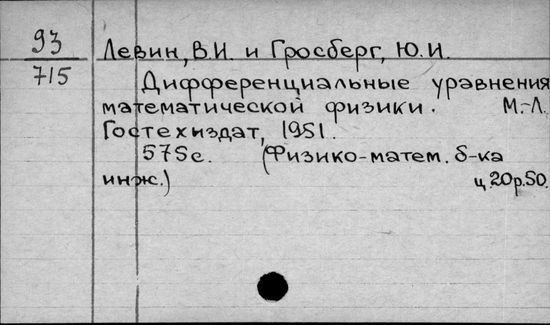 93
715
Левин, В.И. и Гросберг, Ю.И.
Дифференциальные уравнения
математической физики. М.-Л.
Гостехиздат, 1951.
575с. (Физико-матем. б-ка
инж.) ц.20р.50.